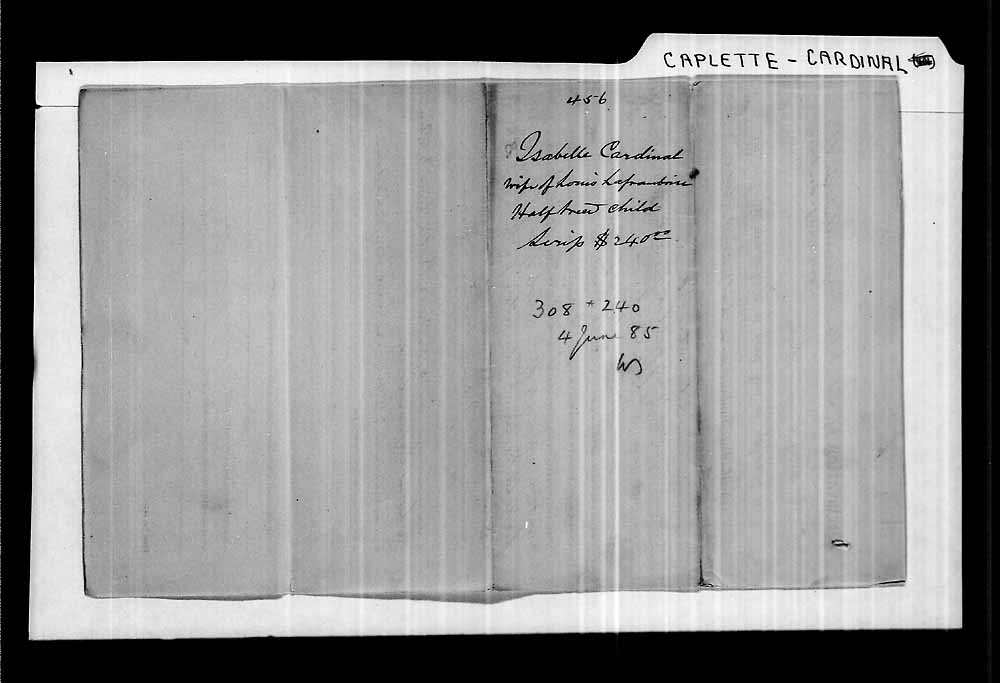 CAPLETTE - CARDINAL
456
Isabelle Cardinal
wife of Louis Laframboise
Halfbreed child
Scrip $240.00
308 + 240
4 June 85